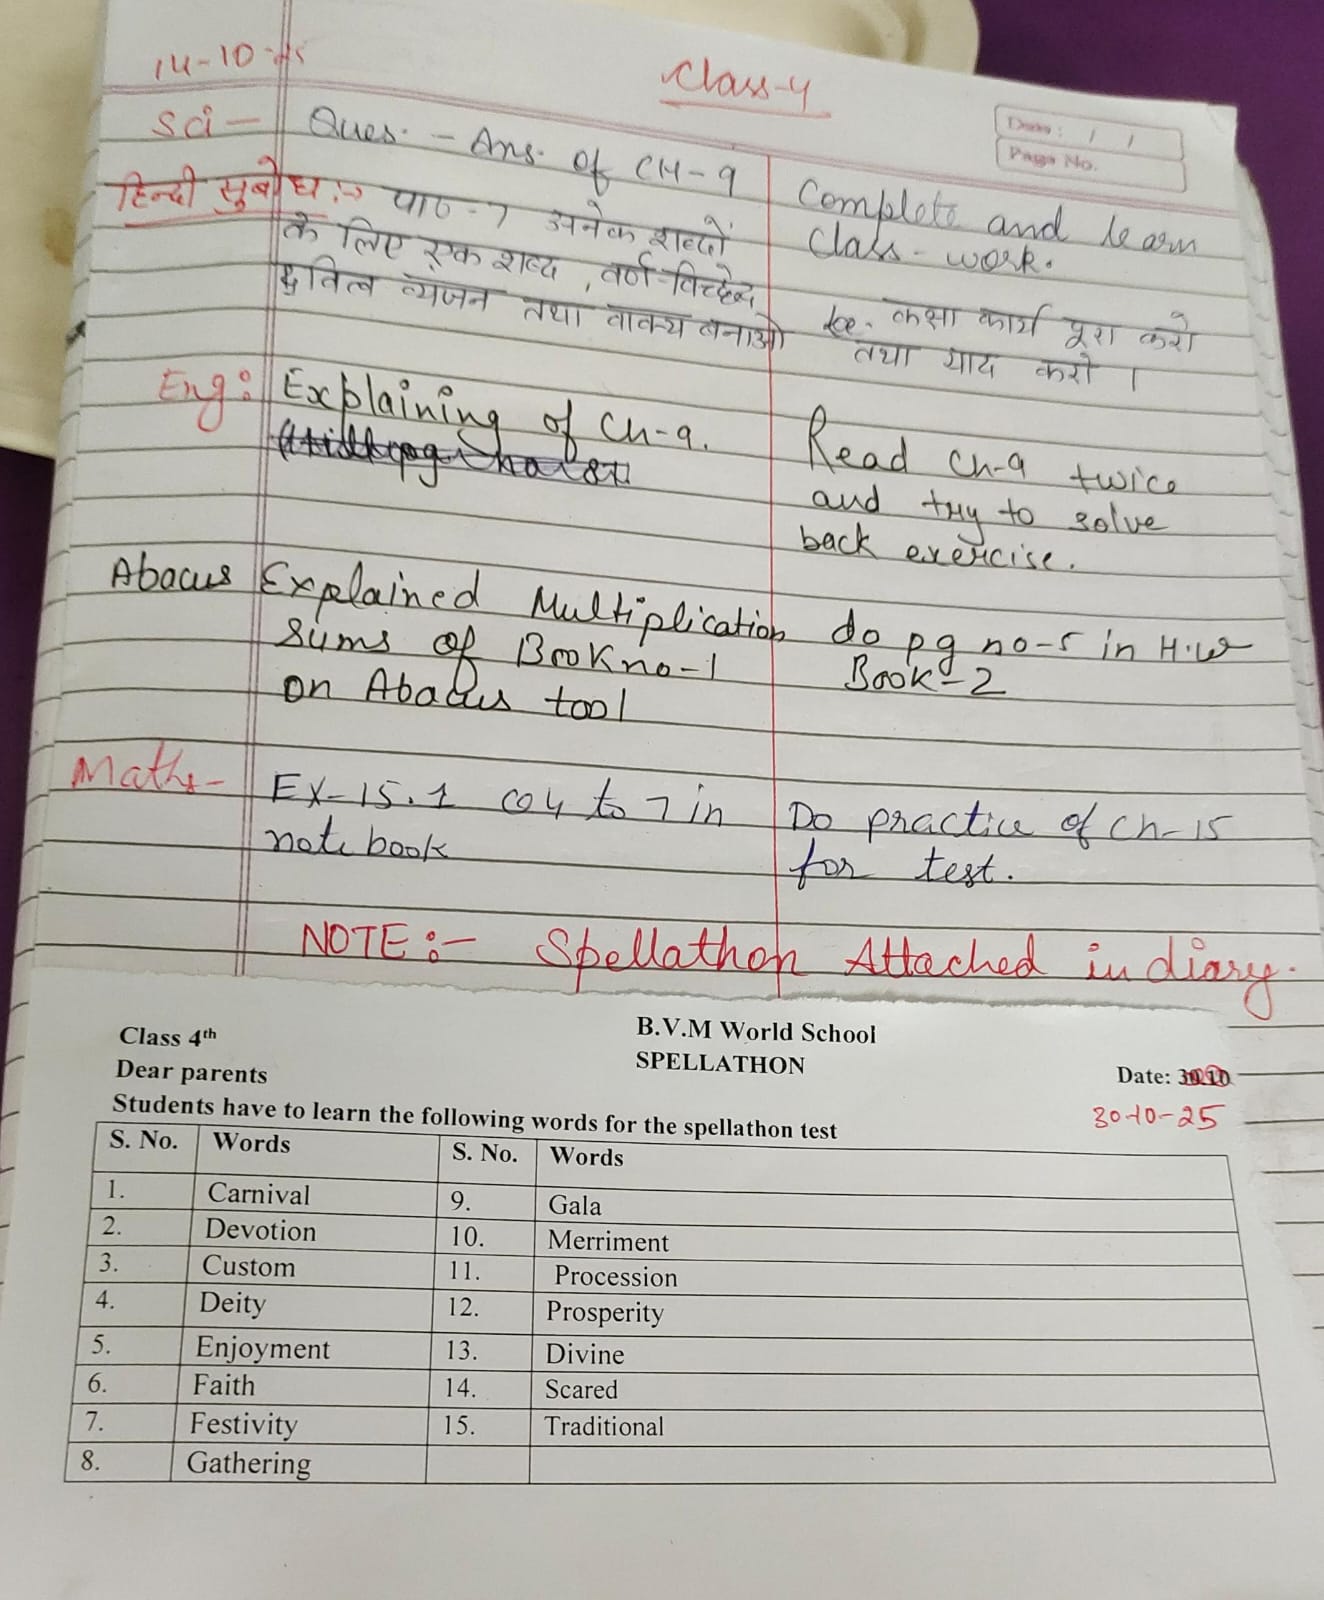 14-10-25
Class-4
Date: / /
Page No.
Sci - Ques. - Ans. of CH-9
Complete and learn
class-work.
हिन्दी सुबोध :-> पाठ-7 अनेक शब्दों
के लिए एक शब्द, वर्ण-विच्छेद
द्वित्व व्यंजन तथा वाक्य बनाओ
कक्षा कार्य पूरा करो
तथा याद करो ।
Eng: Explaining of Ch-9.
Read Ch-9 twice
and try to solve
back exercise.
Abacus Explained Multiplication
sums of Book no-1
on Abacus tool
do pg no-5 in H.W
Book-2
Maths- Ex-15.1 Q4 to 7 in
notebook
Do practice of Ch-15
for test.
NOTE:- Spellathon Attached in diary.
B.V.M World School
Class 4th
SPELLATHON
Dear parents
Date:
30-10-25
Students have to learn the following words for the spellathon test
S. No. Words S. No. Words
1. Carnival 9. Gala
2. Devotion 10. Merriment
3. Custom 11. Procession
4. Deity 12. Prosperity
5. Enjoyment 13. Divine
6. Faith 14. Scared
7. Festivity 15. Traditional
8. Gathering